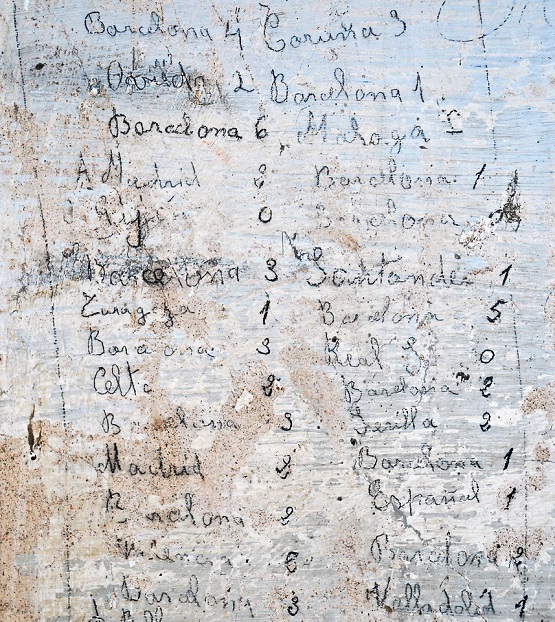 Barcelona 4 Coruña 3
Oviedo 2 Barcelona 1
Barcelona 6 Malaga 1
A. Madrid 2 Barcelona 1
Gijón 0 Barcelona
Barcelona 3 Santander 1
Zaragoza 1 Barcelona 5
Barcelona 3 Real 0
Celta 2 Barcelona 2
Barcelona 3 Sevilla 2
Madrid 2 Barcelona 1
Barcelona 2 Español 1
Valencia Barcelona 2
Barcelona 3 Valladolid 1